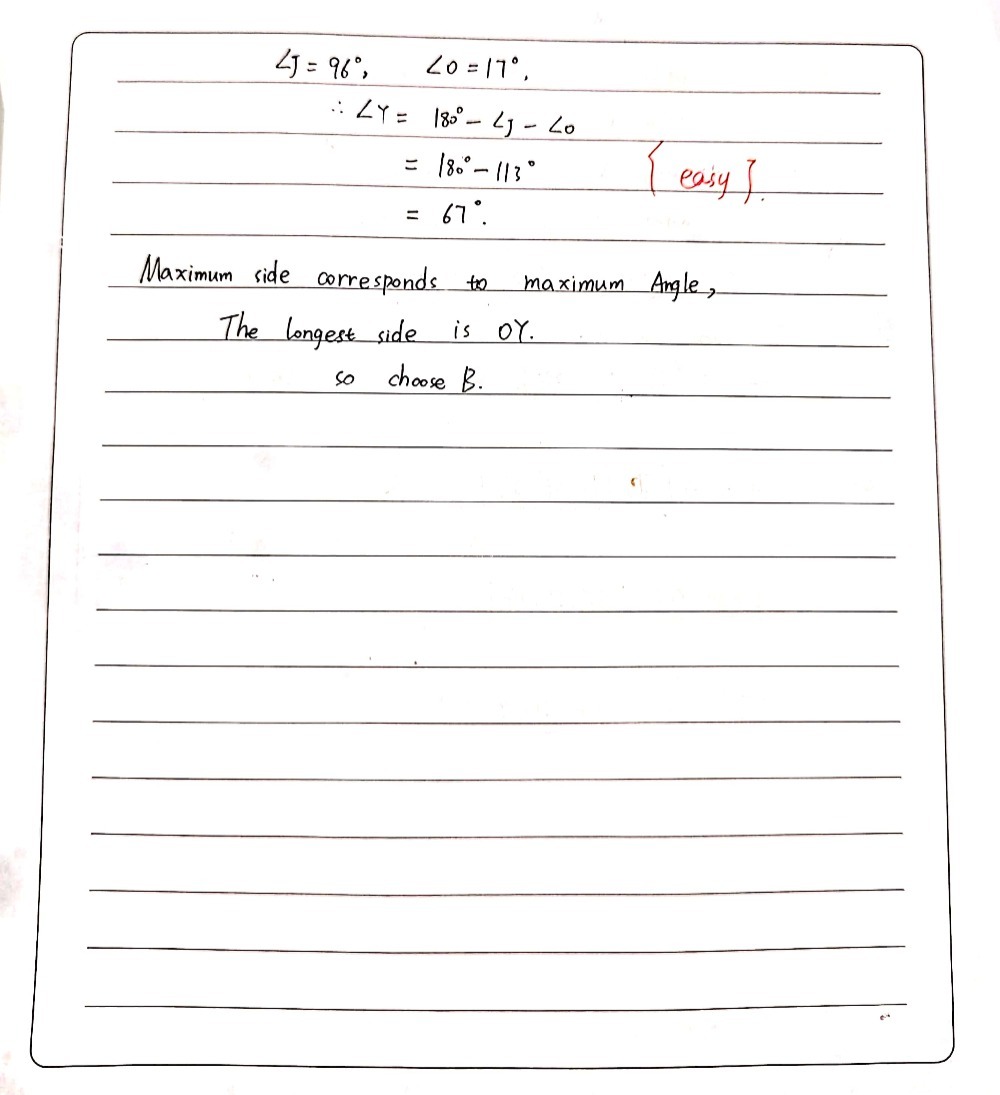 ∠J = 96°, ∠O = 17°.
∴ ∠Y = 180° - ∠J - ∠O
= 180° - 113°
{ easy }.
= 67°.
Maximum side corresponds to maximum Angle,
The longest side is OY.
so choose B.